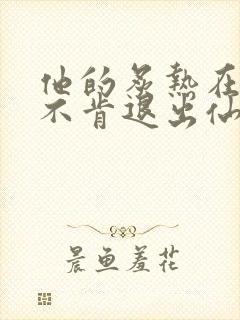 他的炙热在
不肯退出仙
晨鱼羞花